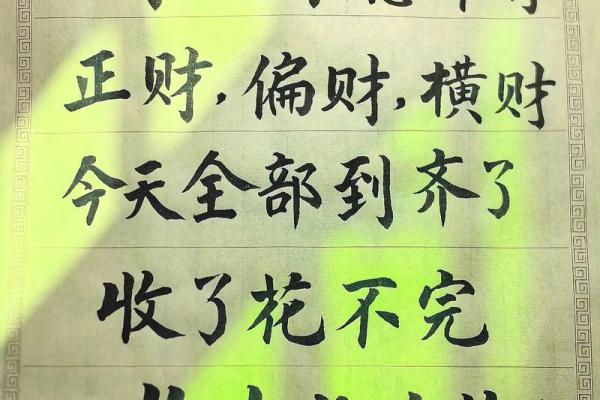 正财，偏财，横财
今天全部到齐了
收了花不完